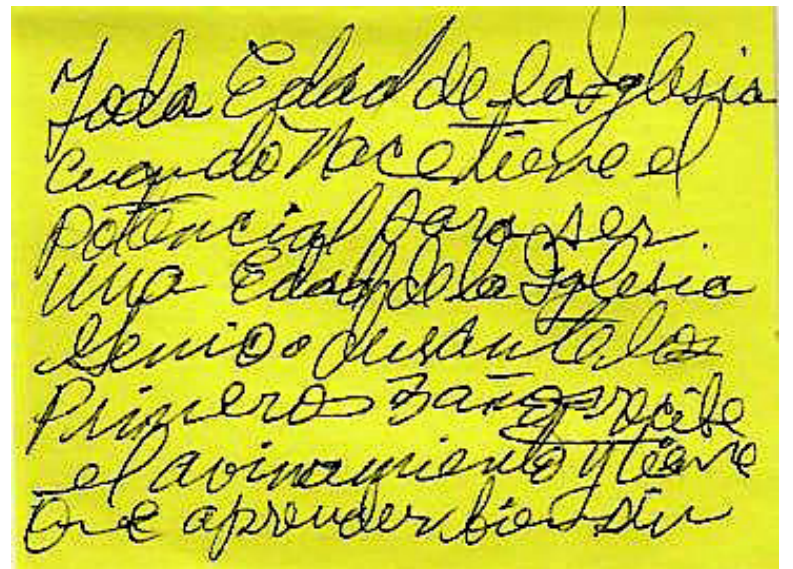 Toda Edad de la Iglesia
cuando Nace tiene el
Potencial para ser
una Edad de la Iglesia
Genio. durante los
Primeros 3 años recibe
el avivamiento y tiene
que aprender bien sin